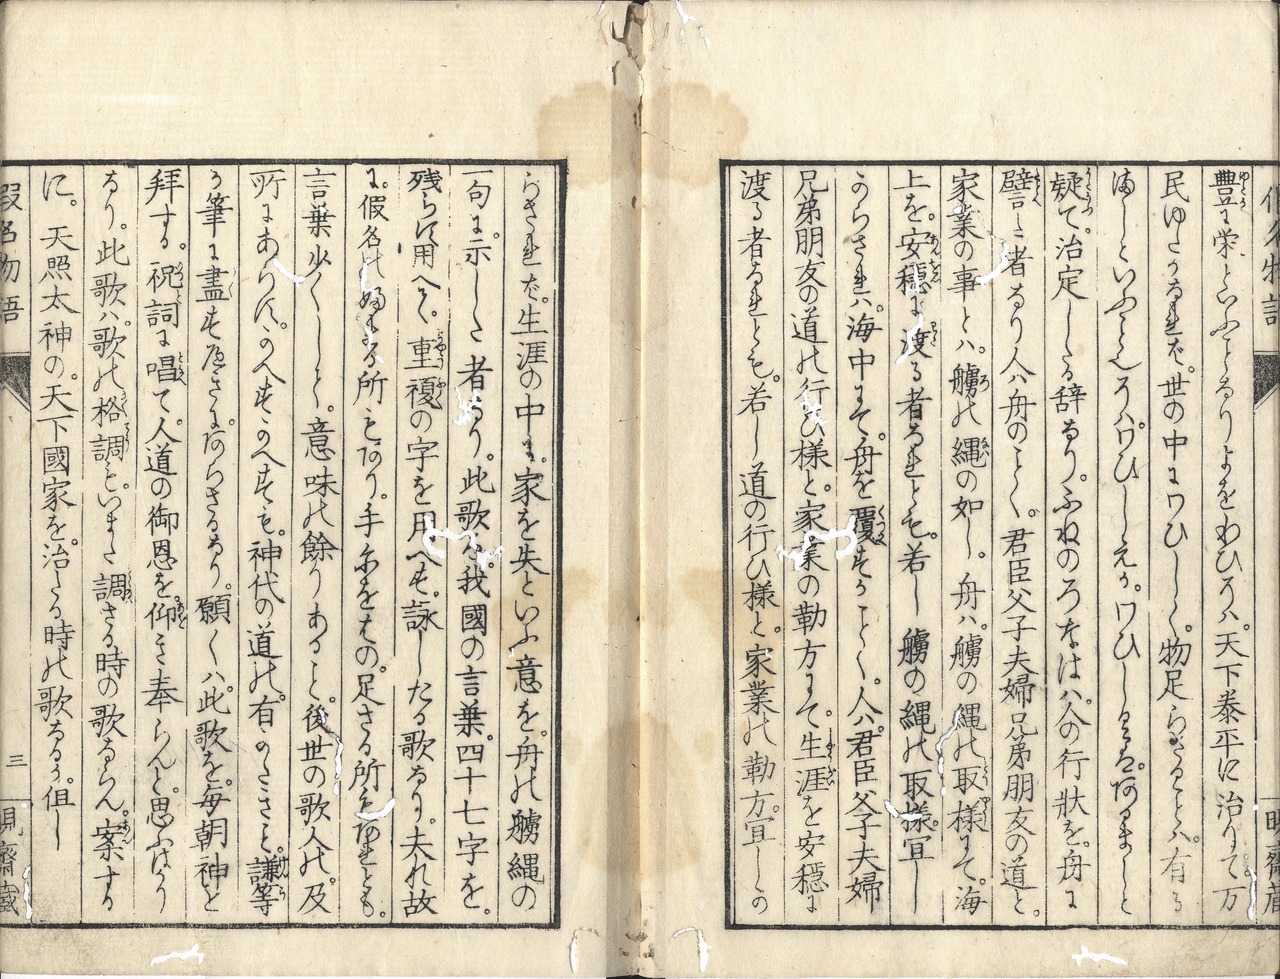 豊に栄といふことなりよをわひろハ。天下泰平に治りて万
民ゆたかなれば。世の中にワひしく。物足らざることハ。有る
まじといふこゝろハワひしえか。ワひしるは。あるまじと
疑て。治定したる辞なり。ふねのろなはハ人の行状を。舟に
譬した者なり人ハ舟のことく。君臣父子夫婦兄弟朋友の道と。
家業の事とハ。艣の縄の如し。舟ハ。艣の縄の取様にて。海
上を。安穏に渡る者なれとも。若し艣の縄の取様。宜し
からされハ。海中にて。舟を覆すかことく。人ハ。君臣父子夫婦
兄弟朋友の道の行ひ様と。家業の勤方にて。生涯を安穏に
渡る者なれとも。若し道の行ひ様と。家業の勤方。宜しか
らされば。生涯の中に。家を失といふ意を。舟の艣縄の
一句に。示した者なり。此歌ハ我國の言葉。四十七字を。
残らす用へて。重複の字を用へす。詠したる歌なり。夫れ故
に。假名の婦なる所もあり。手尓をはの。足さる所もあれとも。
言葉少くしして。意味の餘りあること。後世の歌人の。及
所にあらす。かへすかへすも。神代の道の。有かたさと。謙等
か筆に盡す及さにあらさるなり。願くハ。此歌を。毎朝神と
拝する。祝詞に唱て。人道の御恩を。仰き奉らんと。思ふはかり
なり。此歌ハ。歌の格調も。いまた調さる時の歌ならん。案する
に。天照太神の。天下國家を。治たる時の歌なるか。但し
假名物語
三